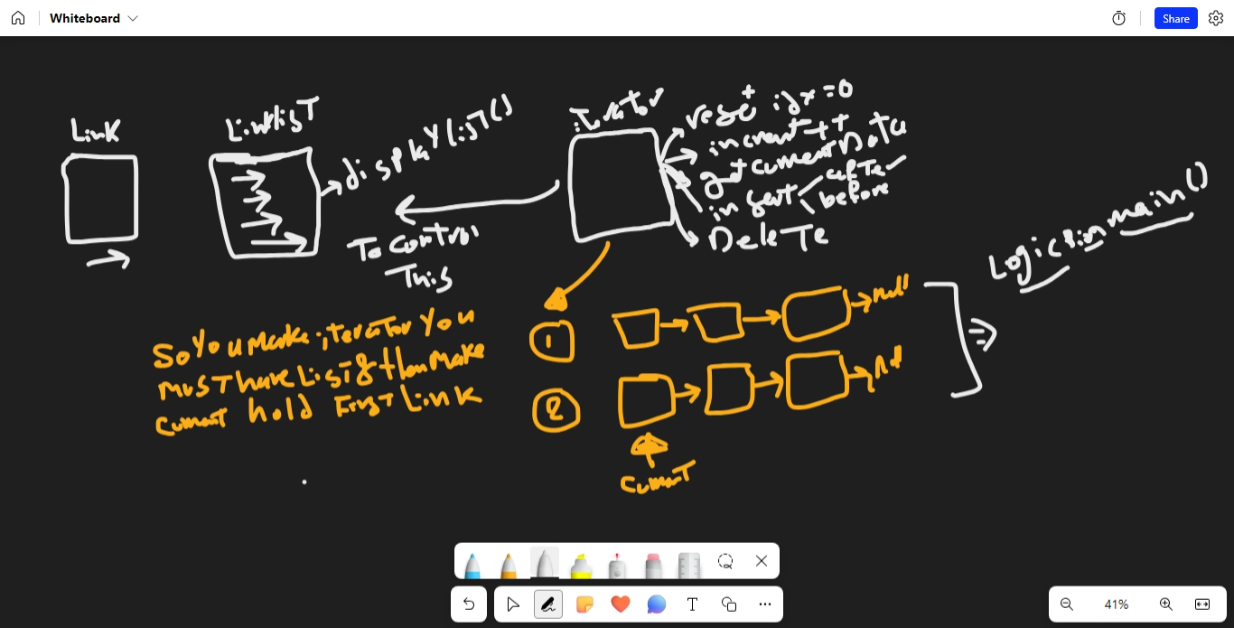 Whiteboard
Share
Link
LinklisT
displaYlisT()
iterator
reset idx=0
increment++
getcurrentData
insert afTe
before
DeleTe
To control
This
Logic is in main()
So You make iterator You
musT have LisT & then make
current hold FirsT Link
1
null
2
currenT
T
41%